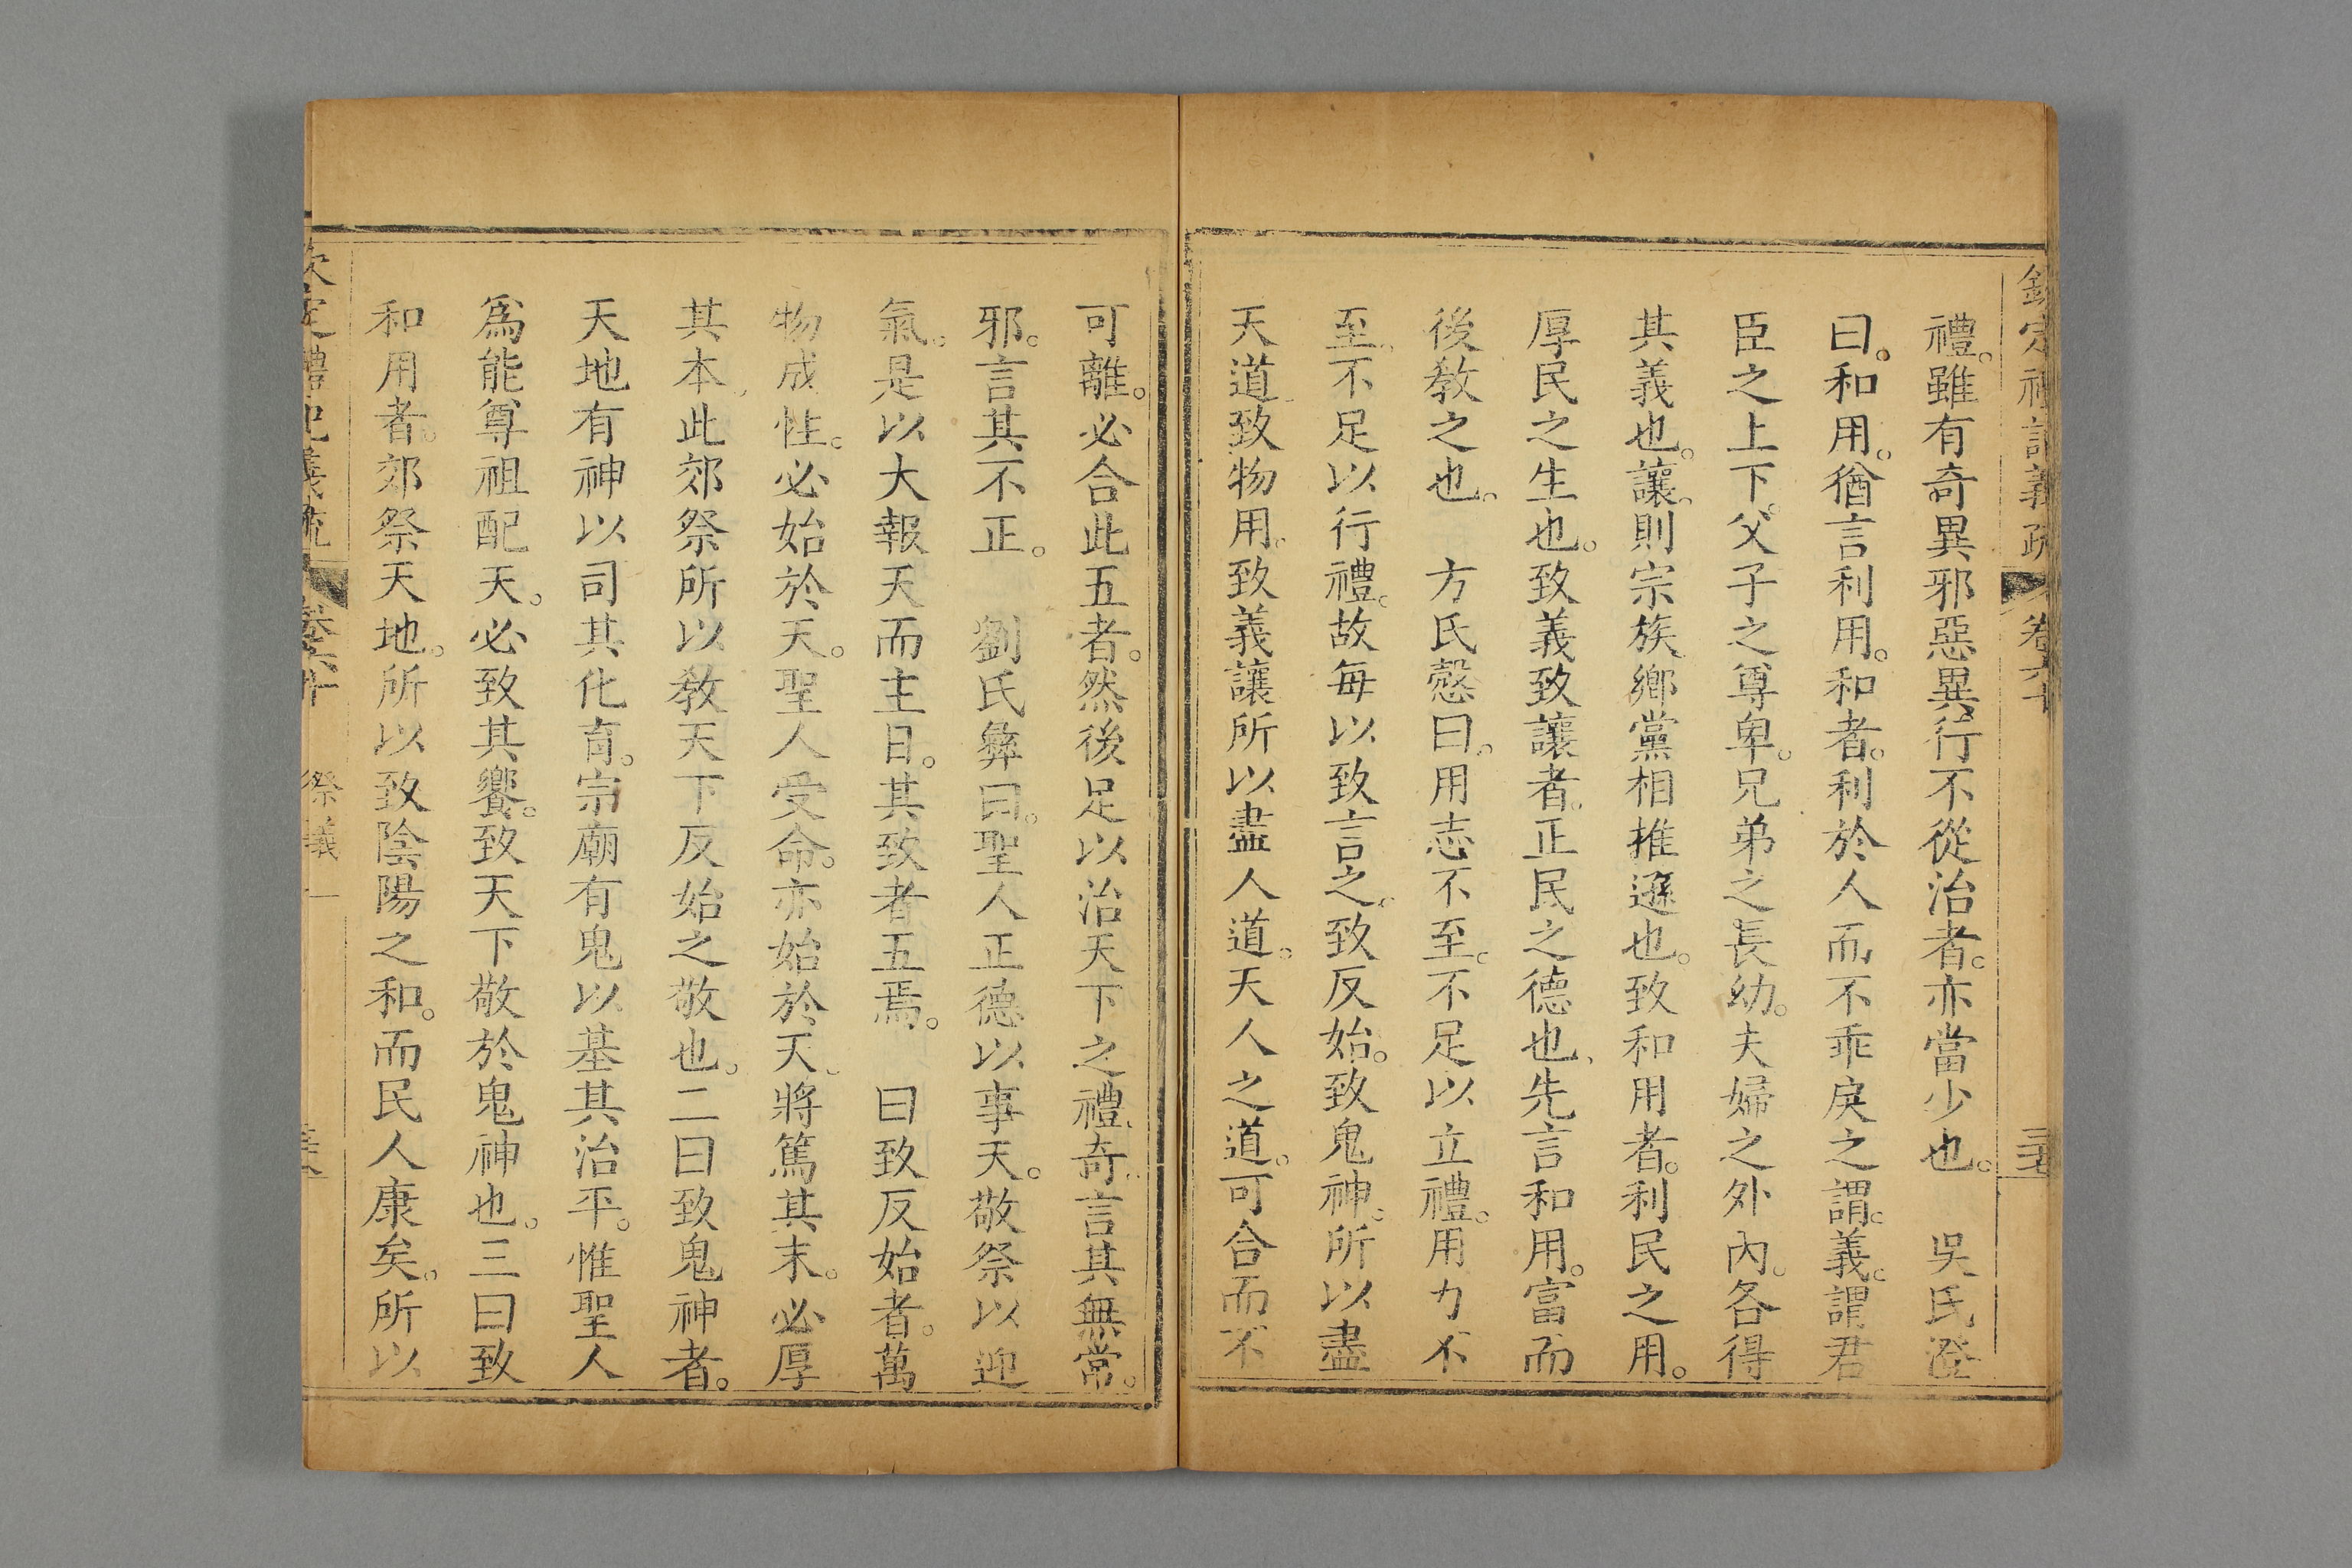 欽定禮記義疏 卷六十
禮。雖有奇異邪惡異行不從治者。亦當少也。 吳氏澄
曰。和用。猶言利用。和者。利於人而不乖戾之謂。義。謂君
臣之上下。父子之尊卑。兄弟之長幼。夫婦之外內。各得
其義也。讓。則宗族、鄉黨相推遜也。致和用者。利民之用。
厚民之生也。致義致讓者。正民之德也、先言和用。富而
後教之也。 方氏慤曰。用志不至。不足以立禮。用力不
至、不足以行禮。故每以致言之。致反始。致鬼神。所以盡
天道致物用。致義讓所以盡人道。天人之道。可合而不
可離。必合此五者。然後足以治天下之禮、奇、言其無常。
邪。言其不正。 劉氏彝曰。聖人正德以事天。敬祭以迎
氣。是以大報天而主日。其致者五焉。 曰致反始者。萬
物成性。必始於天。聖人受命。亦始於天、將篤其末。必厚
其本、此郊祭所以教天下反始之敬也。二曰致鬼神者。
天地有神以司其化育。宗廟有鬼以基其治平。惟聖人
爲能尊祖配天。必致其饗。致天下敬於鬼神也。三曰致
和用者。郊祭天地。所以致陰陽之和。而民人康矣。所以
欽定禮記義疏 卷六十 祭義一